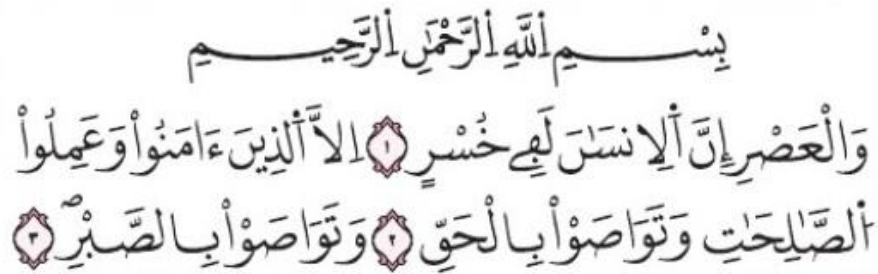 بِسْمِ اِ۬للَّهِ اِ۬لرَّحْمَٰنِ اِ۬لرَّحِيمِ
وَالْعَصْرِ إِنَّ اَ۬لِانسَٰنَ لَفِے خُسْرٍ ١ اِلَّا اَ۬لذِينَ ءَامَنُواْ وَعَمِلُواْ
اُ۬لصَّٰلِحَٰتِ وَتَوَاصَوْاْ بِالْحَقِّ ٢ وَتَوَاصَوْاْ بِالصَّبْرِ ٣